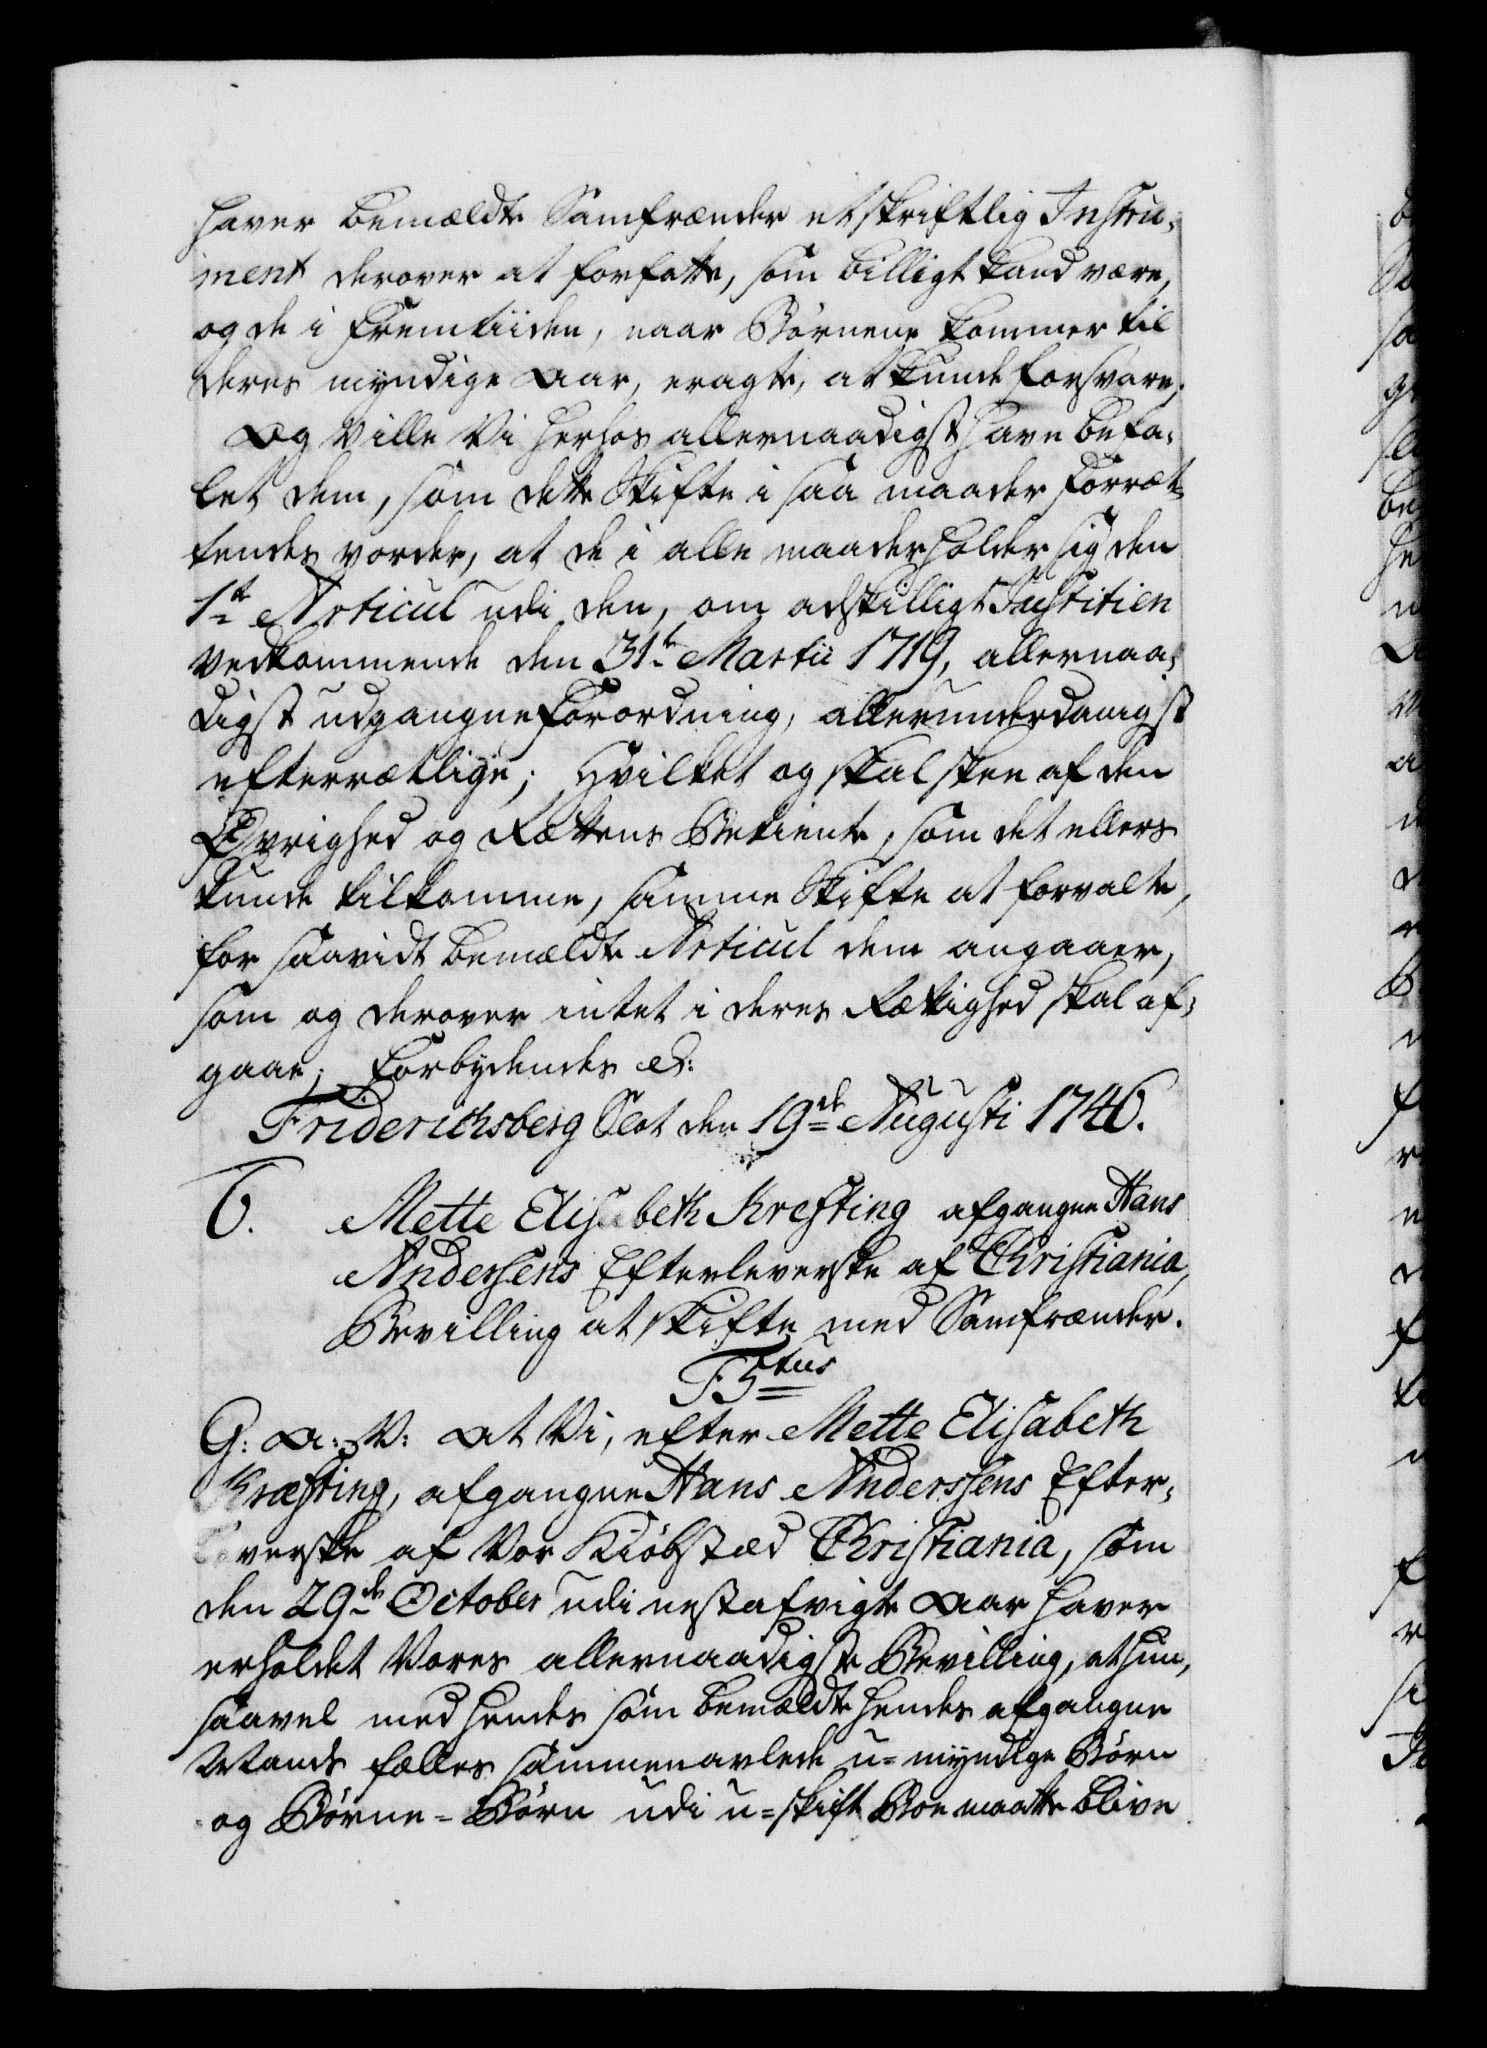 haver bemældte Samfrænder et skriftlig Instru-
ment derover at forfatte, som billigt kand være,
og de i Fremtiiden, naar Børnene kommer til
deres myndige Aar, eragte, at kunde forsvare;
Og Ville Vi herhos allernaadigst have befa-
let dem, som dette Skifte i saa maader Forret-
tendes vorder, at de i alle maader holder sig den
1te Articul udi den, om adskilligt Justitien
vedkommende den 31te Martii 1719, allernaa-
digst udgangne Forordning, allerunderdanigst
efterretlige; Hvilket og skal skee af den
Øvrighed og Rettens Betiente, som det ellers
kunde tilkomme, samme Skifte at forvalte,
for saavidt bemældte Articul dem angaaer,
som og derover intet i deres Rettighed skal af-
gaae; Forbydendes &:
Friderichsberg Slot den 19de Augusti 1746.
6. Mette Elisabeth Krefting afgangne Hans
Anderssens Efterleverske af Christiania,
Bevilling at skifte med Samfrænder.
F5tus
G: A: V: At Vi, efter Mette Elisabeth
Kræfting, afgangne Hans Anderssens Efter-
leverske af Vor Kiøbstæd Christiania, som
den 29de October udi nestafvigte Aar haver
erholdet Vores allernaadigste Bevilling, at hun,
saavel med hendes som bemældte hendes afgangne
Mands fælles sammenavlede u-myndige Børn
og Børne-Børn udi u-skift Boe maatte blive